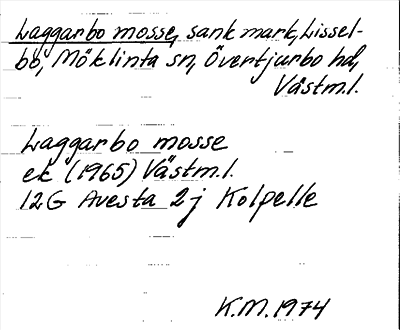 Laggarbo mosse, sank mark, Lissel-
bo, Möklinta sn, Övertjurbo hd,
Västm.l.
Laggarbo mosse
ek (1965) Västm.l.
12G Avesta 2j Kolpelle
K.M. 1974